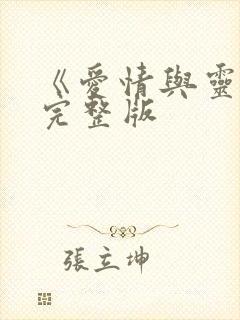 《愛情與靈
完整版
張立坤